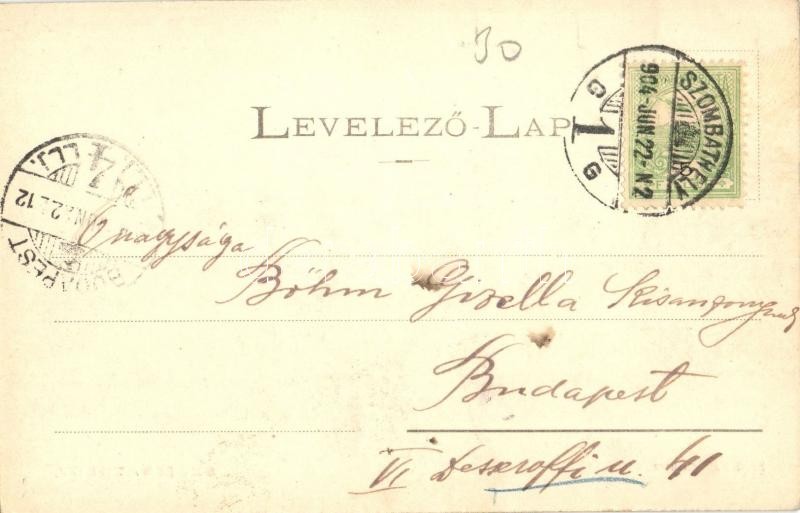 30
LEVELEZŐ-LAP
SZOMBATHELY
904-JUN.22-N2
G 1 G
BUDAPEST
Ő nagysága
Böhm Gisella Kisasszonynak
Budapest
VI Dessewffi u. 41